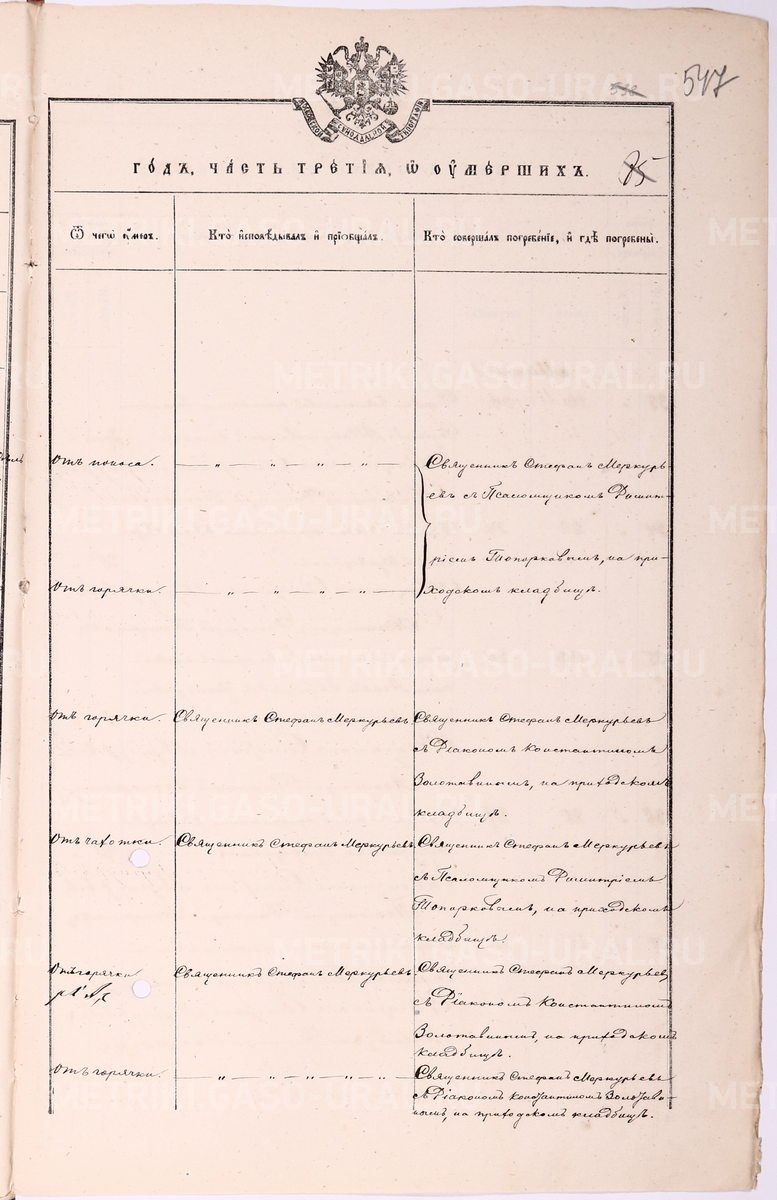 547
МОСКОВСКОЙ СѴНОДАЛЬНОЙ ТИПОГРАФІИ
ГО́ДЪ, ЧА́СТЬ ТРЕ́ТІѦ, Ѡ҆ ОУ҆МЕ́РШИХЪ.
85
Ѿ чегѡ̀ ᲂу҆́меръ.
Кто̀ и҆сповѣ́дывалъ и҆ прїѡбща́лъ.
Кто̀ соверша́лъ погребе́нїе, и҆ гдѣ̀ погребены̀.
Отъ поноса.
Священникъ Стефанъ Меркурь-
евъ съ Псаломщикомъ Димит-
ріемъ Топорковымъ, на при-
Отъ горячки.
ходскомъ кладбищѣ.
Отъ горячки.
Священникъ Стефанъ Меркурьевъ
Священникъ Стефанъ Меркурьевъ
съ Діакономъ Константиномъ
Золотавинымъ, на приходскомъ
кладбищѣ.
Отъ чахотки.
Священникъ Стефанъ Меркурьевъ
Священникъ Стефанъ Меркурьевъ
съ Псаломщикомъ Димитріемъ
Топорковымъ, на приходскомъ
кладбищѣ.
Отъ горячки
Священникъ Стефанъ Меркурьевъ.
Священникъ Стефанъ Меркурьевъ
съ Діакономъ Константиномъ
Золотавинымъ, на приходскомъ
кладбищѣ.
Отъ горячки.
Священникъ Стефанъ Меркурьевъ
съ Діакономъ Константиномъ Золотави-
нымъ, на приходскомъ кладбищѣ.
METRIKI.GASO-URAL.RU